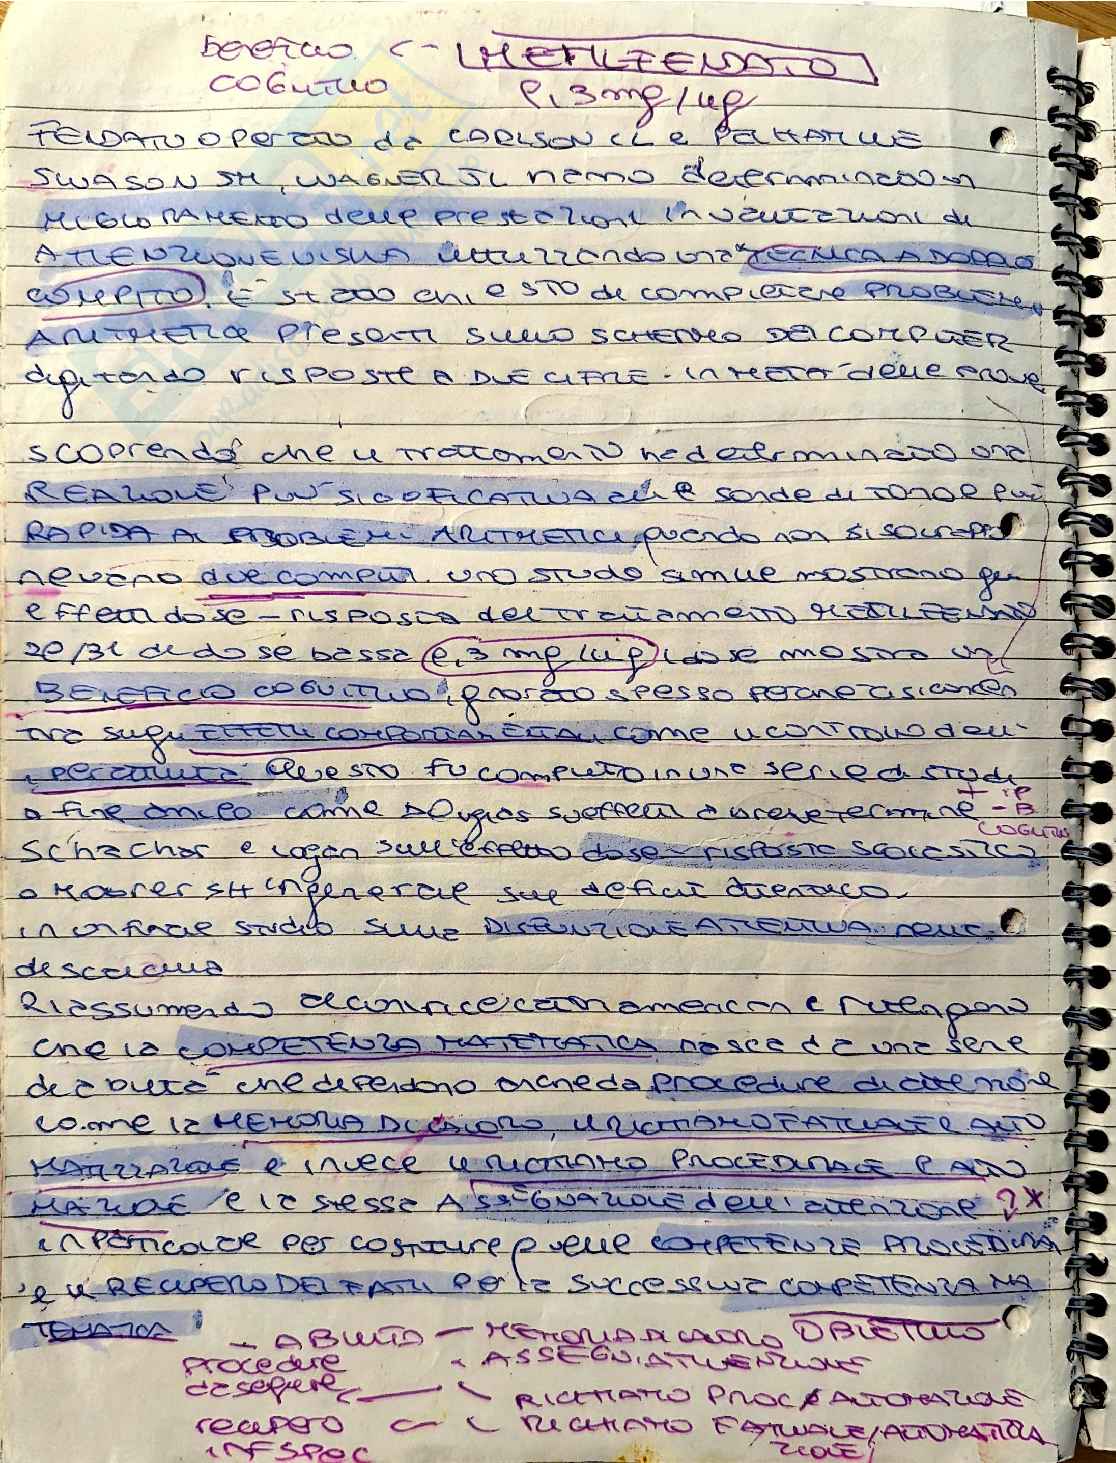 BENEFICIO <- METILFENDATO
COGNITIVO 0,3 mg/kg
FENDATO operato da CARLSON CL e PELHAM WE
SWASON SM, WAGNER JL hanno determinato un
MIGLIORAMENTO delle prestazioni in valutazioni di
ATTENZIONE VISIVA utilizzando una TECNICA A DOPPIO
COMPITO. È stato chiesto di completare PROBLEMI
ARITMETICI presenti sullo SCHERMO DEL COMPUTER
digitando RISPOSTE A DUE CIFRE. in METÀ delle prove
scoprendo che il trattamento ha determinato una
REAZIONE PIÙ SIGNIFICATIVA alle sonde di TONO e più
RAPIDA AI PROBLEMI ARITMETICI, quando non si sovrappo
nevano due compiti. uno studio simile mostrano gli
effetti dose-risposta del trattamento METILFENDATO
di dose bassa 0,3 mg/kg, dose mostra un
BENEFICIO COGNITIVO, ignorato spesso perché ci si concen
tra sugli EFFETTI COMPORTAMENTALI, come il controllo dell'
iperattività. Questo fu compiuto in una serie di studi
a fine come Douglas su effetti a breve termine
+ IP
- B
COGNITIVO
Schachar e Logan sull'effetto dose-risposta SCOLASTICO
o in generale sul deficit attentivo.
in un finale studio sulla DISFUNZIONE ATTENTIVA nella
discalculia
Riassumendo americani ritengono
che la COMPETENZA MATEMATICA nasca da una serie
di abilità che dipendono anche da procedure di attenzione
come la MEMORIA DI LAVORO, il RICHIAMO FATTUALE e AUTO
MATIZZAZIONE e invece il RICHIAMO PROCEDURALE e AUTO
MAZIONE e la stessa ASSEGNAZIONE dell'attenzione ? *
in particolare per costituire quelle COMPETENZE PROCEDURA
e il RECUPERO DEI FATTI per la successiva COMPETENZA MA
TEMATICA
- ABILITÀ - MEMORIA DI LAVORO OBIETTIVO
procedure - ASSEGN. ATTENZIONE
da seguire <- - RICHIAMO PROC/AUTOMAZIONE
recupero <- - RICHIAMO FATTUALE/AUTOMATIZZA
INF SPEC ZIONE